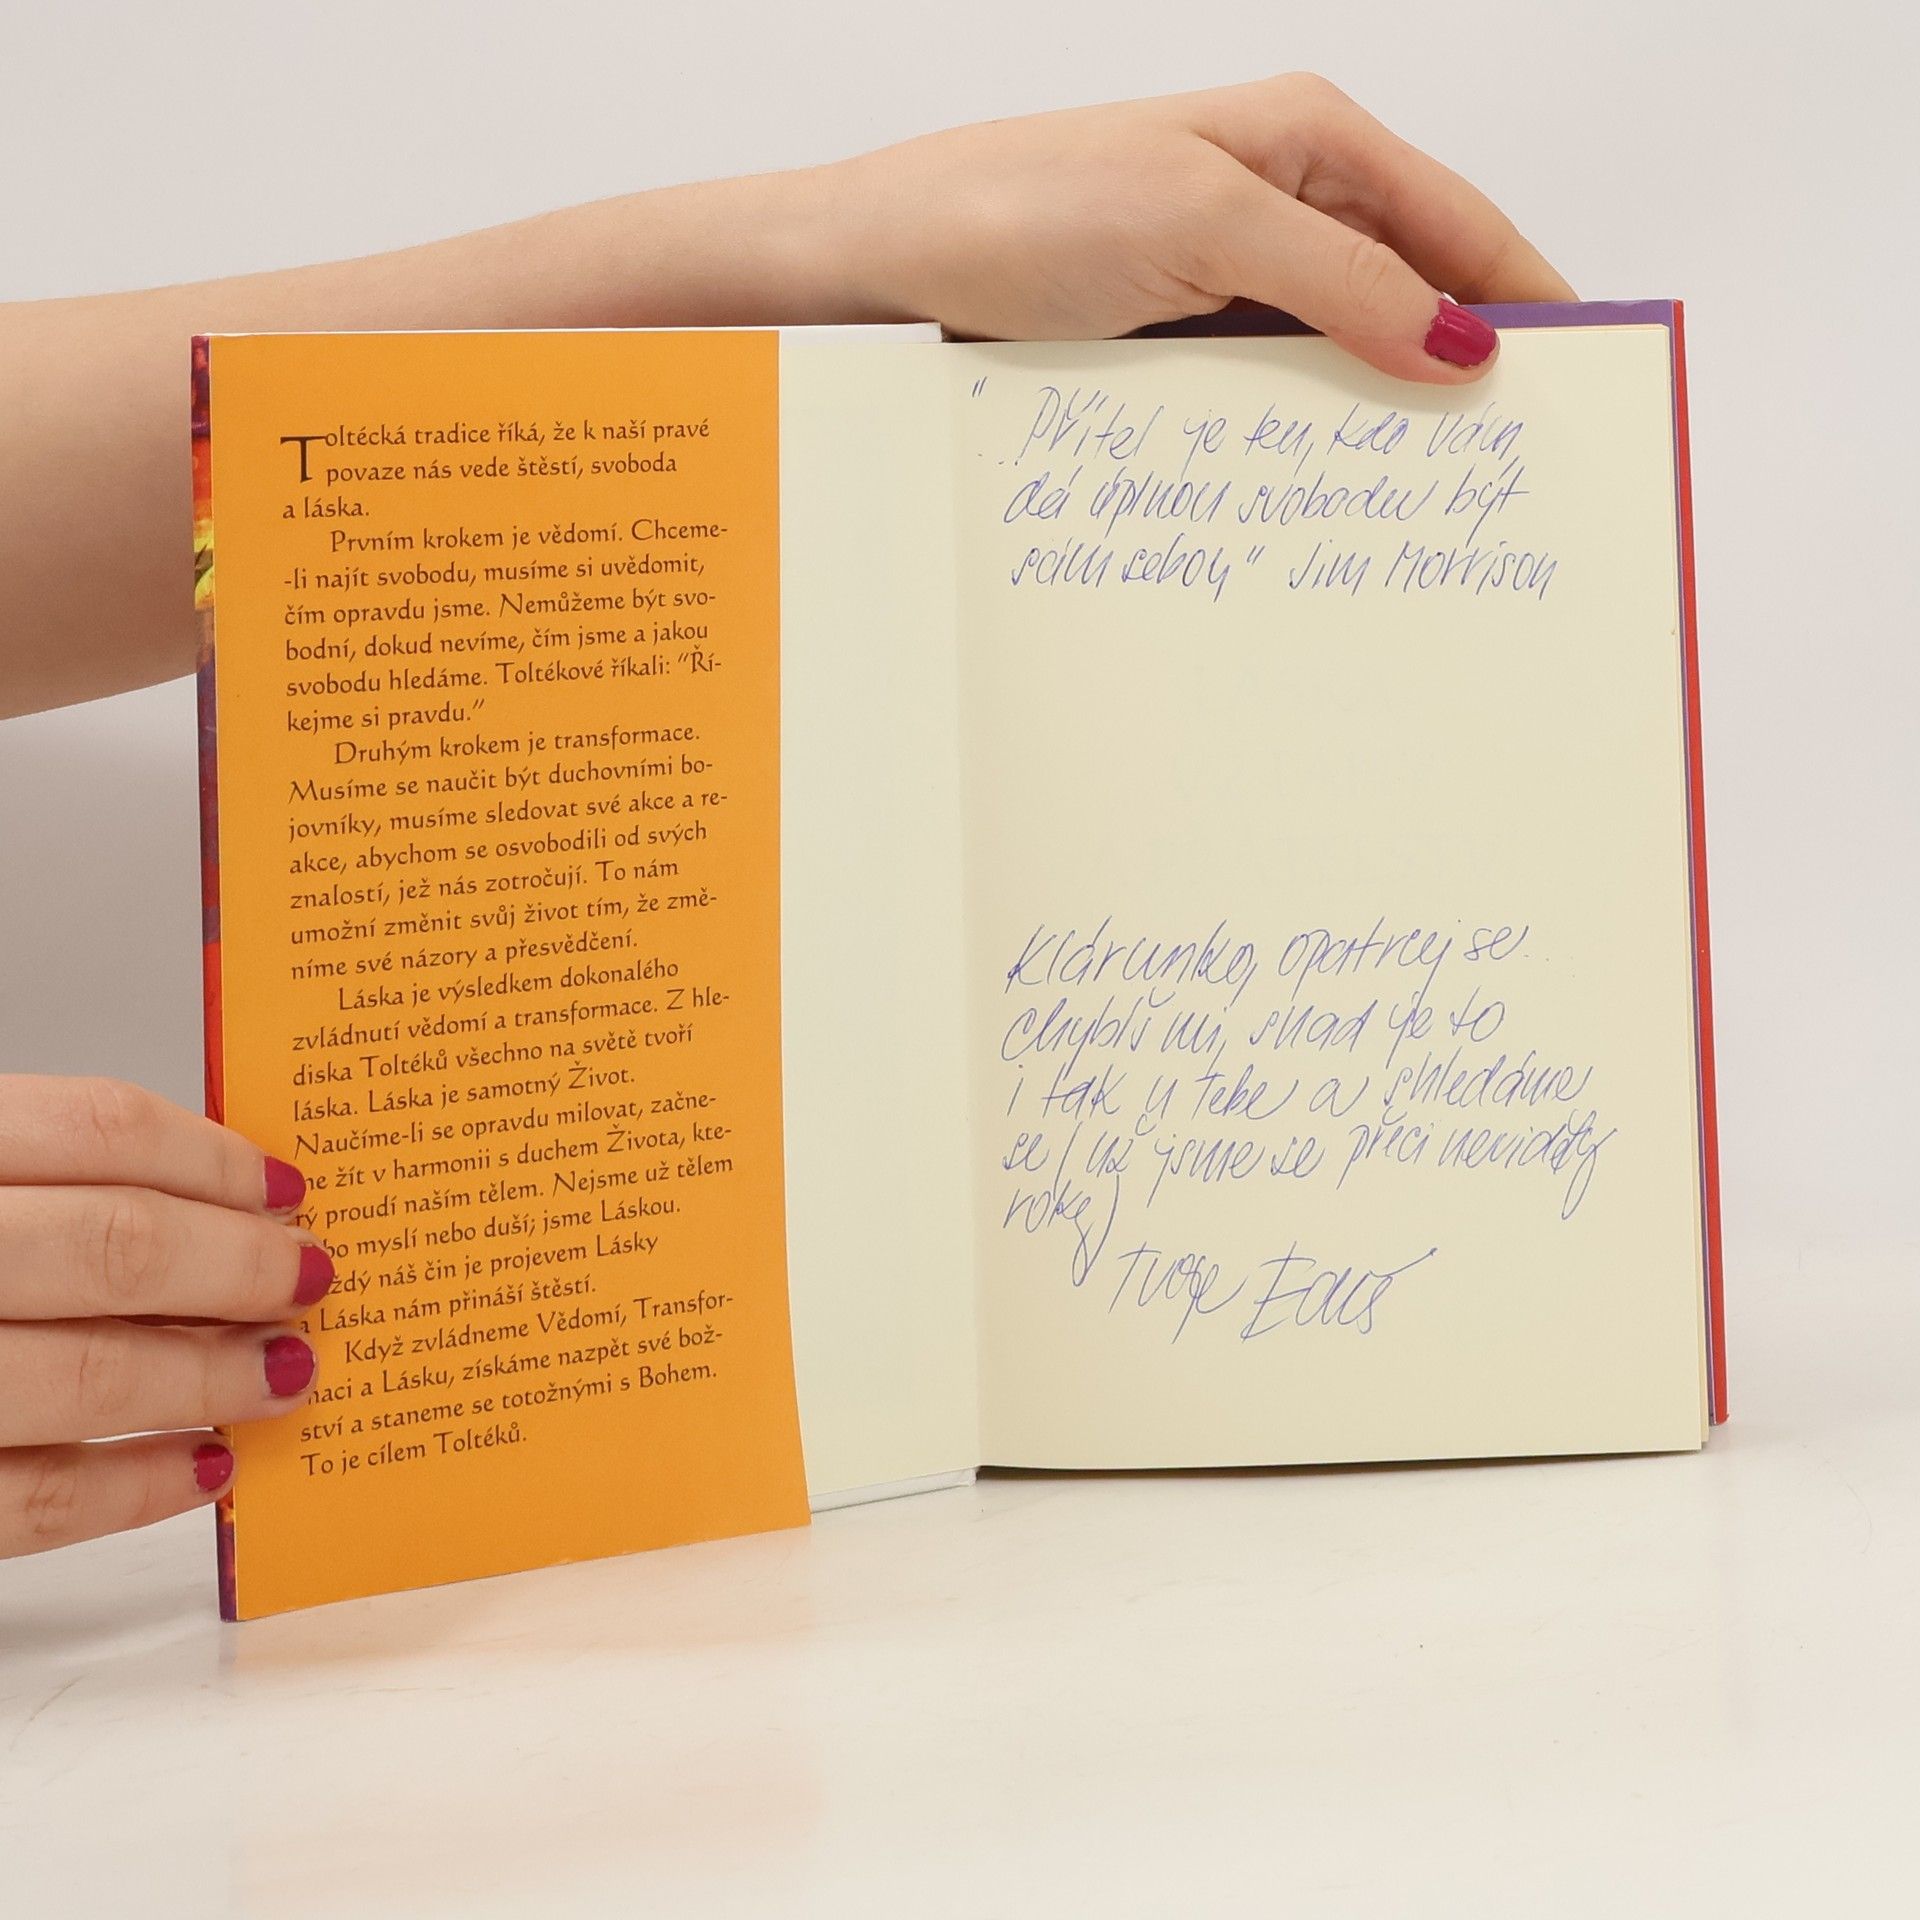 Toltécká tradice říká, že k naší pravé
povaze nás vede štěstí, svoboda
a láska.
Prvním krokem je vědomí. Chceme-
-li najít svobodu, musíme si uvědomit,
čím opravdu jsme. Nemůžeme být svo-
bodní, dokud nevíme, čím jsme a jakou
svobodu hledáme. Toltékové říkali: "Ří-
kejme si pravdu."
Druhým krokem je transformace.
Musíme se naučit být duchovními bo-
jovníky, musíme sledovat své akce a re-
akce, abychom se osvobodili od svých
znalostí, jež nás zotročují. To nám
umožní změnit svůj život tím, že změ-
níme své názory a přesvědčení.
Láska je výsledkem dokonalého
zvládnutí vědomí a transformace. Z hle-
diska Toltéků všechno na světě tvoří
láska. Láska je samotný Život.
Naučíme-li se opravdu milovat, začne-
me žít v harmonii s duchem Života, kte-
rý proudí naším tělem. Nejsme už tělem
bo myslí nebo duší; jsme Láskou.
ždý náš čin je projevem Lásky
a Láska nám přináší štěstí.
Když zvládneme Vědomí, Transfor-
maci a Lásku, získáme nazpět své bož-
ství a staneme se totožnými s Bohem.
To je cílem Toltéků.
"Přítel je ten, kdo Vám
dá úplnou svobodu být
sám sebou" Jim Morrison
Klárunko, opatruj se..
chybíš mi, snad je to
i tak u tebe a shledáme
se (už jsme se přeci neviděly
roky)
Tvoje